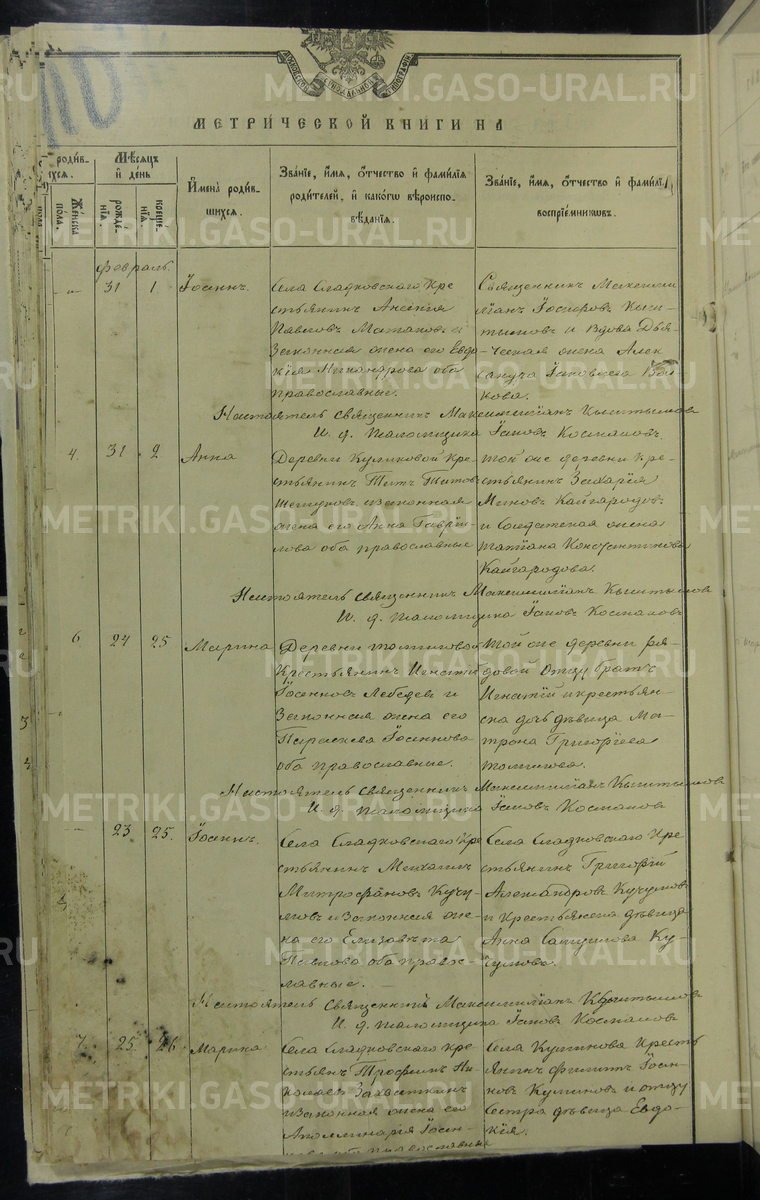 110
МЕТРИЧЕСКОЙ КНИГИ НА
родив-
шхся.
Женска
пола.
Мѣсяцъ
и день
рожде-
нія.
креще-
нія.
Имена родив-
шихся.
Званіе, имя, отчество и фамилія
родителей, и какого вѣроиспо-
вѣданія.
Званіе, имя, отчество и фамилія
воспріемниковъ.
Февраль.
31 1 Іоаннъ.
Села Сладковскаго Кре
стьянинъ
Павловъ
Законная жена его Евдо
кія Никандрова оба
православные.
Священникъ Максими
ліанъ Іосифовъ Кыш
тымовъ и вдова Дья-
ческая жена Алек
сандра Іаковлева
кова.
Настоятель священникъ Максимиліанъ Кыштымовъ
И. д. псаломщика Іаковъ Космаковъ
4. 31 2 Анна
Деревни Куликовой Кре-
стьянинъ Титъ Титовъ
и законная
жена его Анна Гаврі-
лова оба православные
Той же деревни Кре-
стьянинъ Захарія
Миновъ Кайгородовъ
и солдатская жена
Татіана Константинова
Кайгородова.
Настоятель священникъ Максимиліанъ Кыштымовъ
И. д. псаломщика Іаковъ Космаковъ
6 24 25 Марина
Деревни
Крестьянинъ Игнатій
Іоанновъ Лебедевъ и
Законная жена его
Параскева Іоаннова
оба православные.
Той же деревни ря-
довой отцу братъ
Игнатій и крестьян-
ска дочь дѣвица Ма-
трона Григоріева
Настоятель священникъ Максимиліанъ Кыштымовъ
И. д. псаломщика Іаковъ Космаковъ
23 25. Іоаннъ.
Села Сладковскаго Кре
стьянинъ Михаилъ
Митрофановъ Кучу-
мовъ и Законная же-
на его Елизавета
Павлова оба право-
славные.
Села Сладковскаго Кре
стьянинъ Григорій
Александровъ Кучумовъ
и Крестьянска дѣвица
Анна Кучумова.
Настоятель Священникъ Максимиліанъ Кыштымовъ
И. д. псаломщика Іаковъ Космаковъ
7. 25 26 Марина
Села Сладковскаго Кре
стьянъ Трофимъ Ни-
колаевъ
и законная жена его
Аполлинарія Іоан-
нова оба православные
Села Куликова Кресть
янинъ Филиппъ Іоан-
новъ Куликовъ и отцу
сестра дѣвица Евдо-
кія.
METRIKI.GASO-URAL.RU